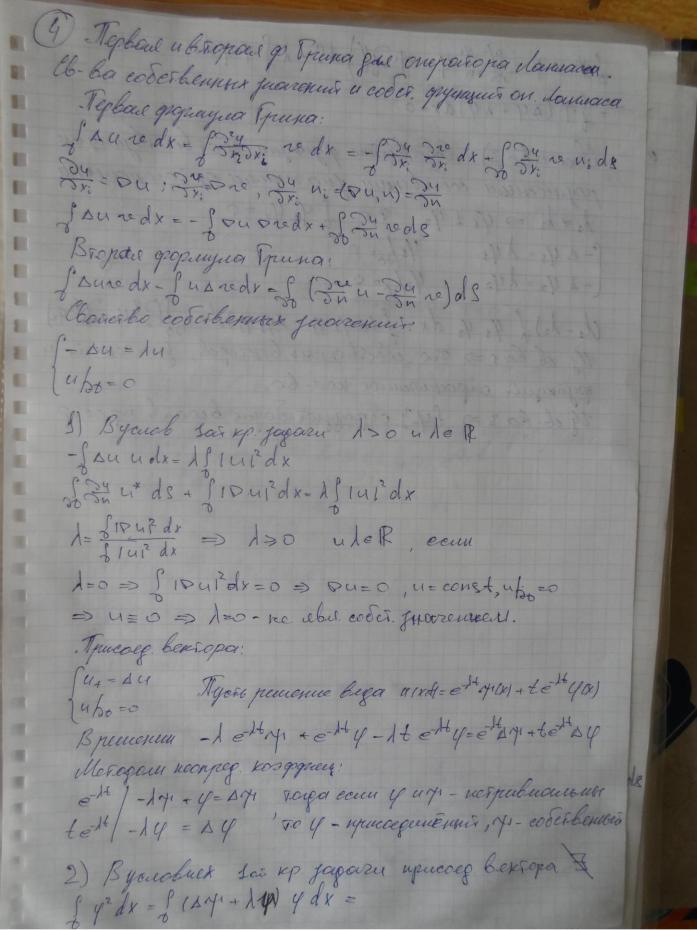 4) Первая и вторая ф. Грина для оператора Лапласа.
Св-ва собственных значений и собст. функций оп. Лапласа
Первая формула Грина:
∫_D Δu v dx = ∫_D ∂²u/∂x_i∂x_i v dx = -∫_D ∂u/∂x_i ∂v/∂x_i dx + ∫_∂D ∂u/∂x_i v n_i dS
∂u/∂x_i = ∇u ; ∂v/∂x_i = ∇v, ∂u/∂x_i n_i = (∇u, n) = ∂u/∂n
∫_D Δu v dx = -∫_D ∇u ∇v dx + ∫_∂D ∂u/∂n v dS
Вторая формула Грина:
∫_D Δu v dx - ∫_D u Δv dx = ∫_∂D (∂v/∂n u - ∂u/∂n v) dS
Свойство собственных значений:
{ -Δu = λu
{ u|_∂D = 0
1) В услов 1ой кр. задачи λ>0 и λ∈ℝ
-∫_D Δu u dx = λ∫_D |u|² dx
∫_∂D ∂u/∂n u* dS + ∫_D |∇u|² dx = λ∫_D |u|² dx
λ = ∫_D |∇u|² dx / ∫_D |u|² dx ⇒ λ≥0 и λ∈ℝ, если
λ=0 ⇒ ∫_D |∇u|² dx = 0 ⇒ ∇u=0, u=const, u|_∂D=0
⇒ u≡0 ⇒ λ=0 - не явл собст. значением.
Присоед. вектора:
{ u_t = Δu
{ u|_∂D = 0
Пусть решение вида u(x,t) = e^{-λt}ψ(x) + t e^{-λt}φ(x)
В решении -λ e^{-λt}ψ + e^{-λt}φ - λt e^{-λt}φ = e^{-λt}Δψ + t e^{-λt}Δφ
Методом неопред. коэффиц:
e^{-λt} | -λψ + φ = Δψ тогда если φ и ψ - нетривиальны
t e^{-λt} | -λφ = Δφ , то φ - присоединённый, ψ - собственный
2) В условиях 1ой кр задачи присоед вектора ∄
∫_D φ² dx = ∫_D (Δψ + λψ) φ dx =